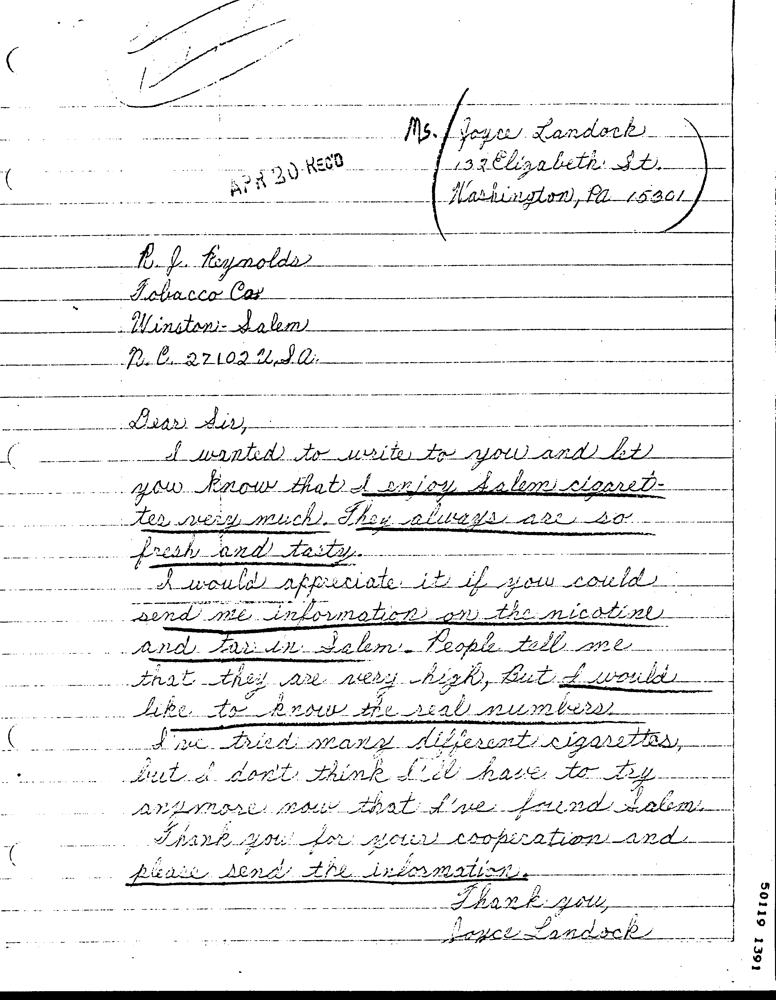 Ms. Joyce Landock
132 Elizabeth St.
Washington, PA 15301
APR 20 REC'D
R. J. Reynolds
Tobacco Co.
Winston-Salem
N.C. 27102 U.S.A.
Dear Sir,
I wanted to write to you and let
you know that I enjoy Salem cigaret-
tes very much. They always are so
fresh and tasty.
I would appreciate it if you could
send me information on the nicotine
and tar in Salem. People tell me
that they are very high, But I would
like to know the real numbers.
I've tried many different cigarettes,
but I don't think I'll have to try
anymore now that I've found Salem.
Thank you for your cooperation and
please send the information.
Thank you,
Joyce Landock
50119 1391